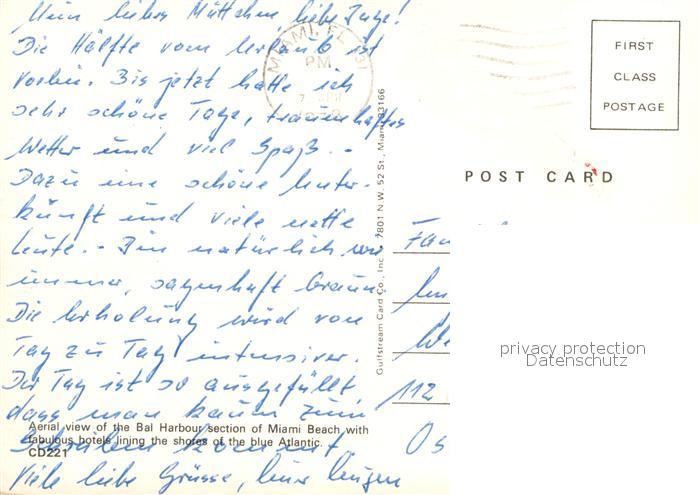 Mein liebes Muttchen, liebe Inge!
Die Hälfte vom Urlaub ist
vorbei. Bis jetzt hatte ich
sehr schöne Tage, traumhaftes
Wetter und viel Spaß. -
Dazu eine schöne Unter-
kunft und viele nette
Leute. - Bin natürlich wie
immer, sagenhaft braun.
Die Erholung wird von
Tag zu Tag intensiver.
Der Tag ist so ausgefüllt,
dass man kaum zum
Schreiben kommt.
Viele liebe Grüsse,
Aerial view of the Bal Harbour section of Miami Beach with
fabulous hotels lining the shores of the blue Atlantic.
CD221
MIAMI, FL
PM
Gulfstream Card Co., Inc., 7801 N.W. 52 St., Miami 33166
FIRST
CLASS
POSTAGE
POST CARD
Fam
112
privacy protection
Datenschutz